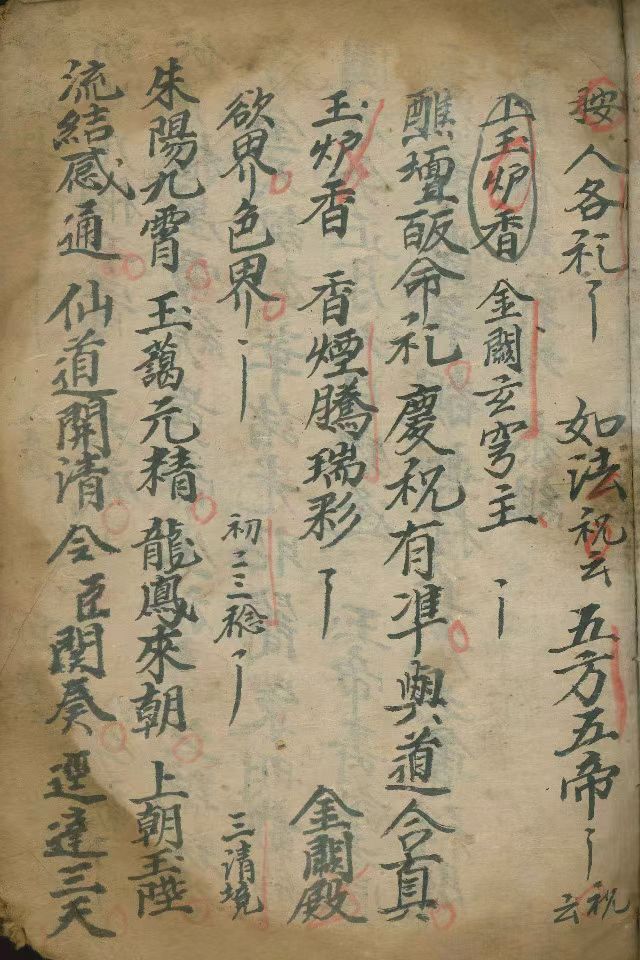 按人各礼 如法祝云 五方五帝 祝云
上玉炉香 金闕玄穹主
醮壇皈命礼 慶祝有準與道合真
玉炉香 香煙騰瑞彩 金闕殿
欲界色界 初二三稔 三清境
朱陽九霄 玉藹元精 龍鳳來朝 上朝玉陛
流結感通 仙道開清 令臣関奏 逕達三天